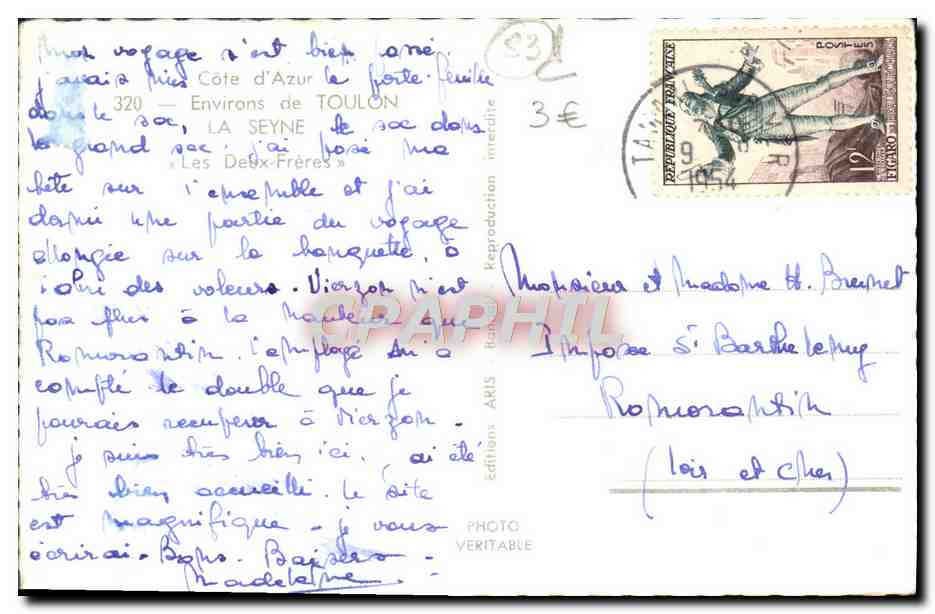 Mon voyage s'est bien passé.
j'avais mis le porte-feuille
dans le sac, le sac dans
le grand sac, j'ai posé ma
tête sur l'ensemble et j'ai
dormi une partie du voyage
allongée sur la banquette, à
l'abri des voleurs. Vierzon n'est
pas plus à la hauteur que
Romorantin. l'employé m'a
compté le double que je
pourrais récupérer à Vierzon.
je suis très bien ici, ai été
très bien accueilli. Le site
est magnifique. je vous
écrirai. Bons Baisers
Madeleine
Côte d'Azur
320 — Environs de TOULON
LA SEYNE
«Les Deux-Frères»
Editions ARIS Reproduction interdite
PHOTO
VERITABLE
CPAPHIL
83
3 €
REPUBLIQUE FRANÇAISE
POSTES
12F
FIGARO
9
1954
VAR
Monsieur et Madame H.
Impasse St Barthelemy
Romorantin
(Loir et Cher)